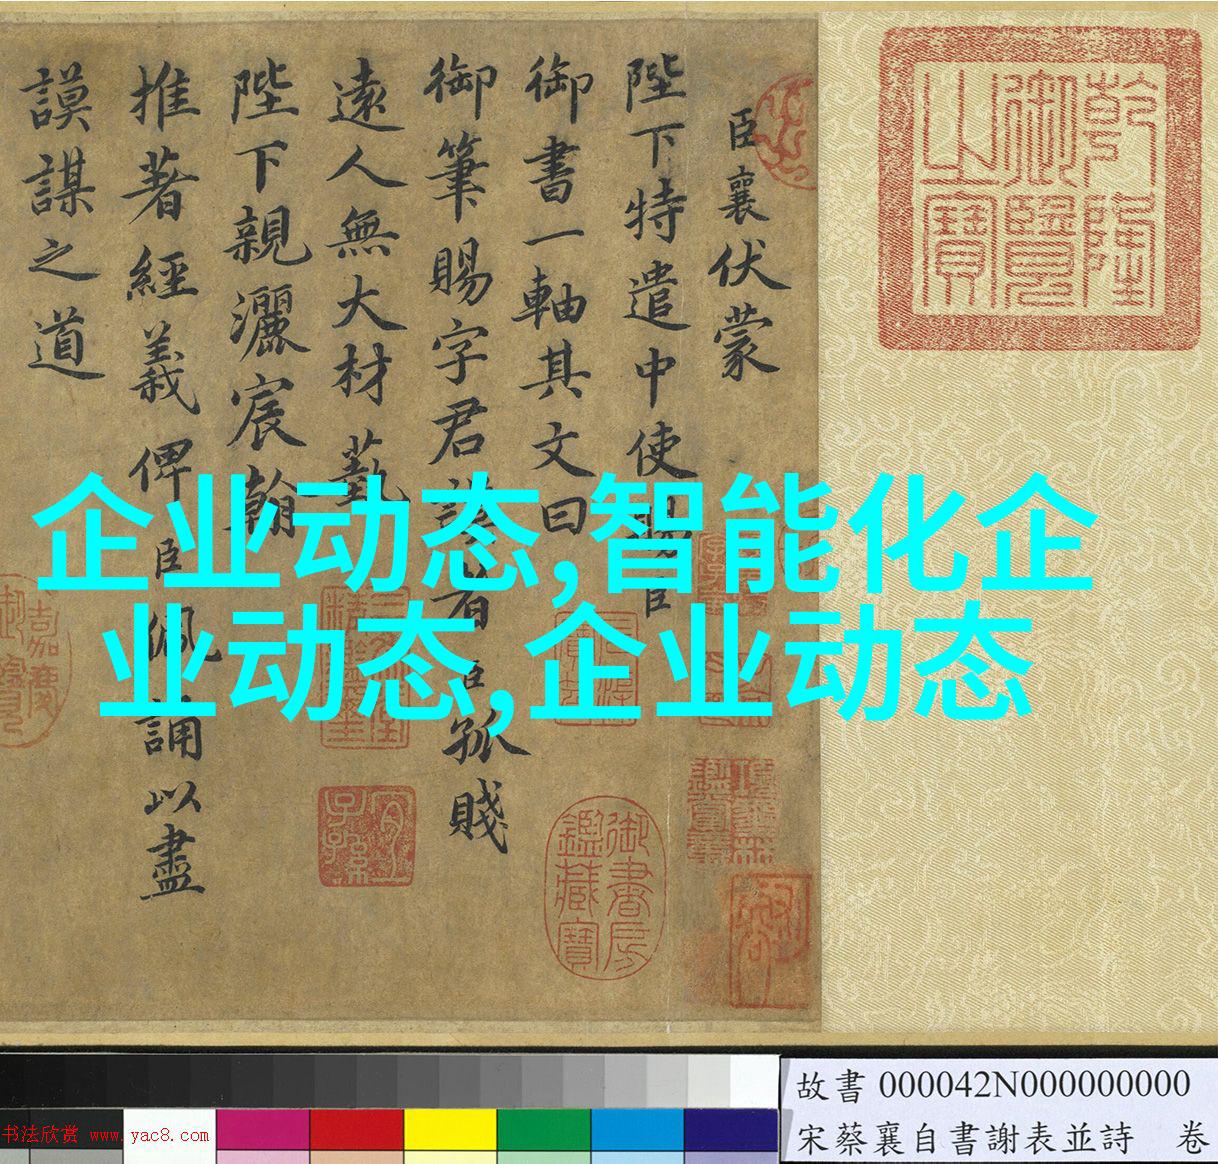 乾隆御覽之寶
臣襄伏蒙
陛下特遣中使賜臣
御書一軸其文曰
御筆賜字君謨者臣孤賤
遠人無大材藝
陛下親灑宸翰
推著經義俾臣佩誦以盡
謨謀之道
企业动态,智能化企
业动态,企业动态
御書房鑑藏寶
宜子孫
三希堂精鑑璽
故書 000042N000000000
宋蔡襄自書謝表並詩 卷
书法欣赏 www.yac8.com